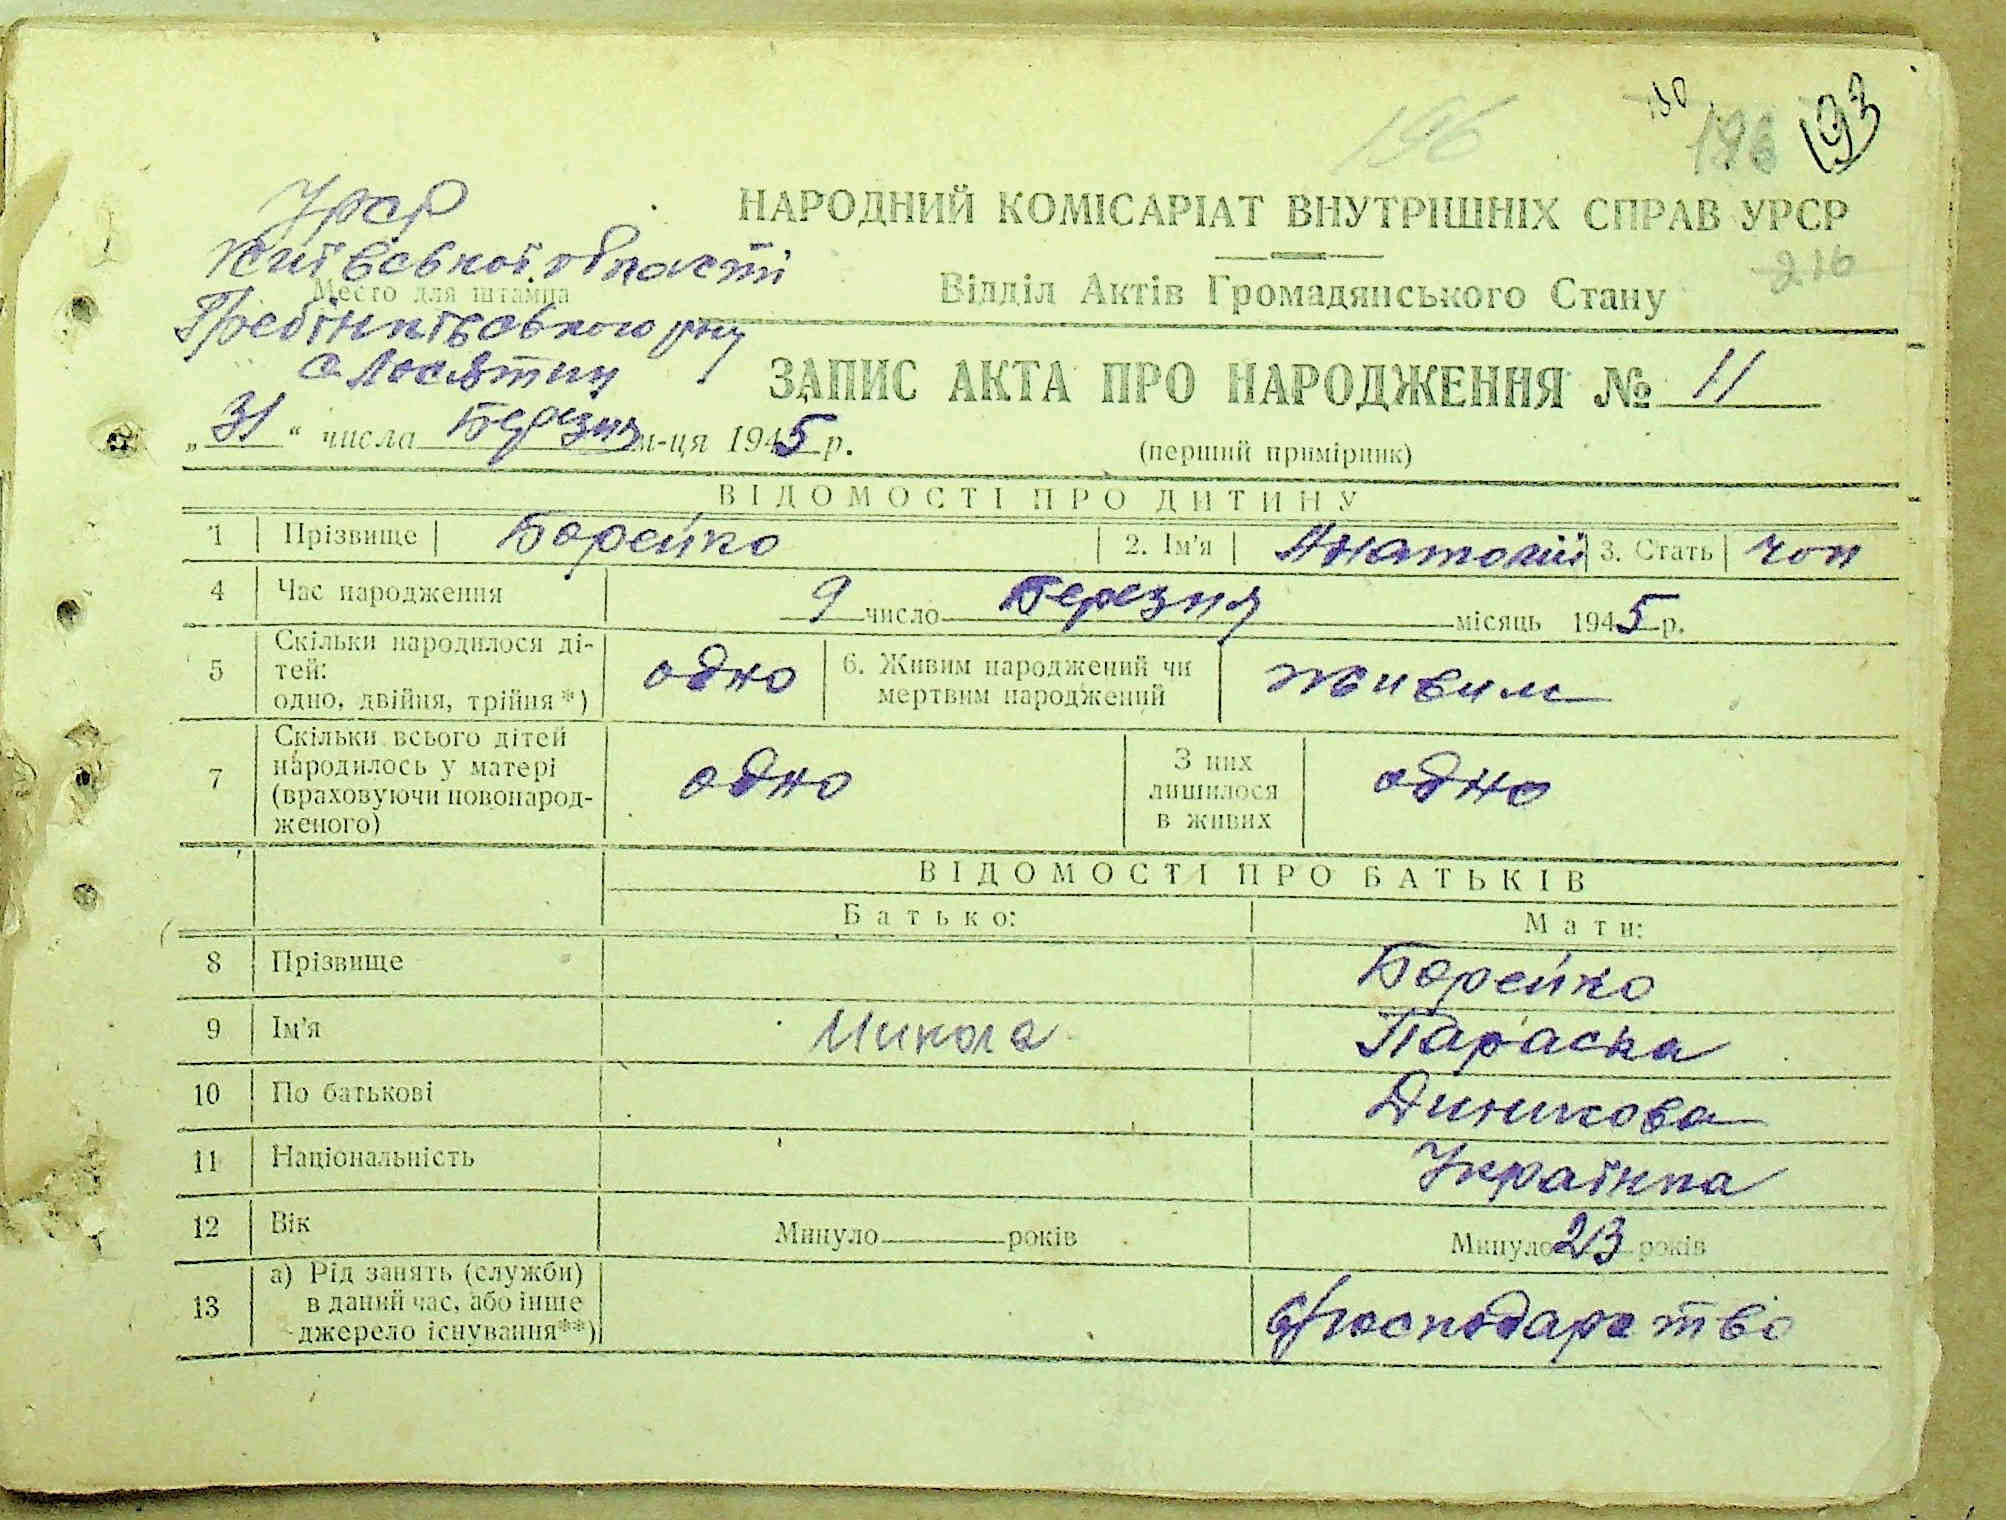 196
130
196
193
УРСР
Київської області
Место для штампа
Гребінківського р-ну
с Лосятин
НАРОДНИЙ КОМІСАРІАТ ВНУТРІШНІХ СПРАВ УРСР
216
Відділ Актів Громадянського Стану
ЗАПИС АКТА ПРО НАРОДЖЕННЯ № 11
„31“ числа Березня м-ця 1945 р.
(перший примірник)
ВІДОМОСТІ ПРО ДИТИНУ
1 Прізвище Борейко 2. Ім'я Анатолій 3. Стать чол
4 Час народження 9 число Березня місяць 1945 р.
5 Скільки народилося ді-
тей:
одно, двійня, трійня*) одно 6. Живим народжений чи
мертвим народжений живим
7 Скільки всього дітей
народилось у матері
(враховуючи новонарод-
женого) одно З них
лишилося
в живих одно
ВІДОМОСТІ ПРО БАТЬКІВ
Батько: Мати:
8 Прізвище Борейко
9 Ім'я Микола Параска
10 По батькові
11 Національність Українка
12 Вік Минуло років Минуло 23 років
13 а) Рід занять (служби)
в даний час, або інше
джерело існування**) господарство